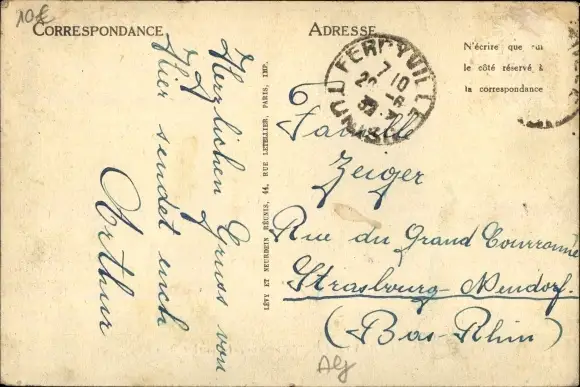 10f
CORRESPONDANCE
Herzlichen Gruss von
Hier sendet euch
Arthur
LEVY ET NEURDEIN RÉUNIS, 44, RUE LETELLIER, PARIS, IMP.
ADRESSE
FERRYVILLE
7 10
TUNISIE
N'écrire que sur
le côté réservé à
la correspondance
Famille
Zeiger
Rue du Grand Couronné
Strasbourg-Neudorf.
(Bas-Rhin)